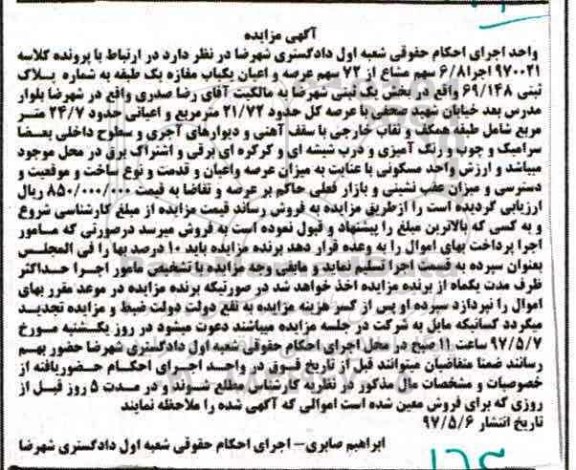 آگهی مزایده
واحد اجرای احکام حقوقی شعبه اول دادگستری شهرضا در نظر دارد در ارتباط با پرونده کلاسه
۹۷۰۰۲۱ اجرا ۶/۸ سهم مشاع از ۷۲ سهم عرصه و اعیان یکباب مغازه یک طبقه به شماره پلاک
ثبتی ۶۹/۱۴۸ واقع در بخش یک ثبتی شهرضا به مالکیت آقای رضا صدری واقع در شهرضا بلوار
مدرس بعد خیابان شهید محفی با عرصه کل حدود ۲۱/۷۲ مترمربع و اعیانی حدود ۲۴/۷ متر
مربع شامل طبقه همکف و نقاب خارجی با سقف آهنی و دیوارهای آجری و سطوح داخلی بعضا
سرامیک و چوب و رنگ آمیزی و درب شیشه ای و کرکره ای برقی و اشتراک برق در محل موجود
میباشد و ارزش واحد مسکونی با عنایت به میزان عرصه واعیان و قدمت و نوع ساخت و موقعیت و
دسترسی و میزان عقب نشینی و بازار فعلی حاکم بر عرضه و تقاضا به قیمت ۸۵۰/۰۰۰/۰۰۰ ریال
ارزیابی گردیده است را ازطریق مزایده به فروش رساند قیمت مزایده از مبلغ کارشناسی شروع
و به کسی که بالاترین مبلغ را پیشنهاد و قبول نموده است به فروش میرسد درصورتی که مامور
اجرا پرداخت بهای اموال را به وعده قرار دهد برنده مزایده باید ۱۰ درصد بها را فی المجلس
بعنوان سپرده به قسمت اجرا تسلیم نماید و مابقی وجه مزایده با تشخیص مامور اجرا حداکثر
ظرف مدت یکماه از برنده مزایده اخذ خواهد شد در صورتیکه برنده مزایده در موعد مقرر بهای
اموال را نپردازد سپرده او پس از کسر هزینه مزایده به نفع دولت دولت ضبط و مزایده تجدید
میگردد کسانیکه مایل به شرکت در جلسه مزایده میباشند دعوت میشود در روز یکشنبه مورخ
۹۷/۵/۷ ساعت ۱۱ صبح در محل اجرای احکام حقوقی شعبه اول دادگستری شهرضا حضور بهم
رسانند ضمنا متقاضیان میتوانند قبل از تاریخ فوق در واحد اجرای احکام حضوریافته از
خصوصیات و مشخصات مال مذکور در نظریه کارشناس مطلع شوند و در مدت ۵ روز قبل از
روزی که برای فروش معین شده است اموالی که آگهی شده را ملاحظه نمایند
تاریخ انتشار ۹۷/۵/۶
ابراهیم صابری– اجرای احکام حقوقی شعبه اول دادگستری شهرضا